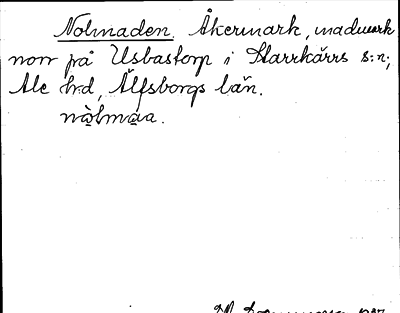 Nolmaden. Åkermark, madmark
norr på Usbastorp i Starrkärrs s:n;
Ale hrd, Älfsborgs län.
nòlmáa.